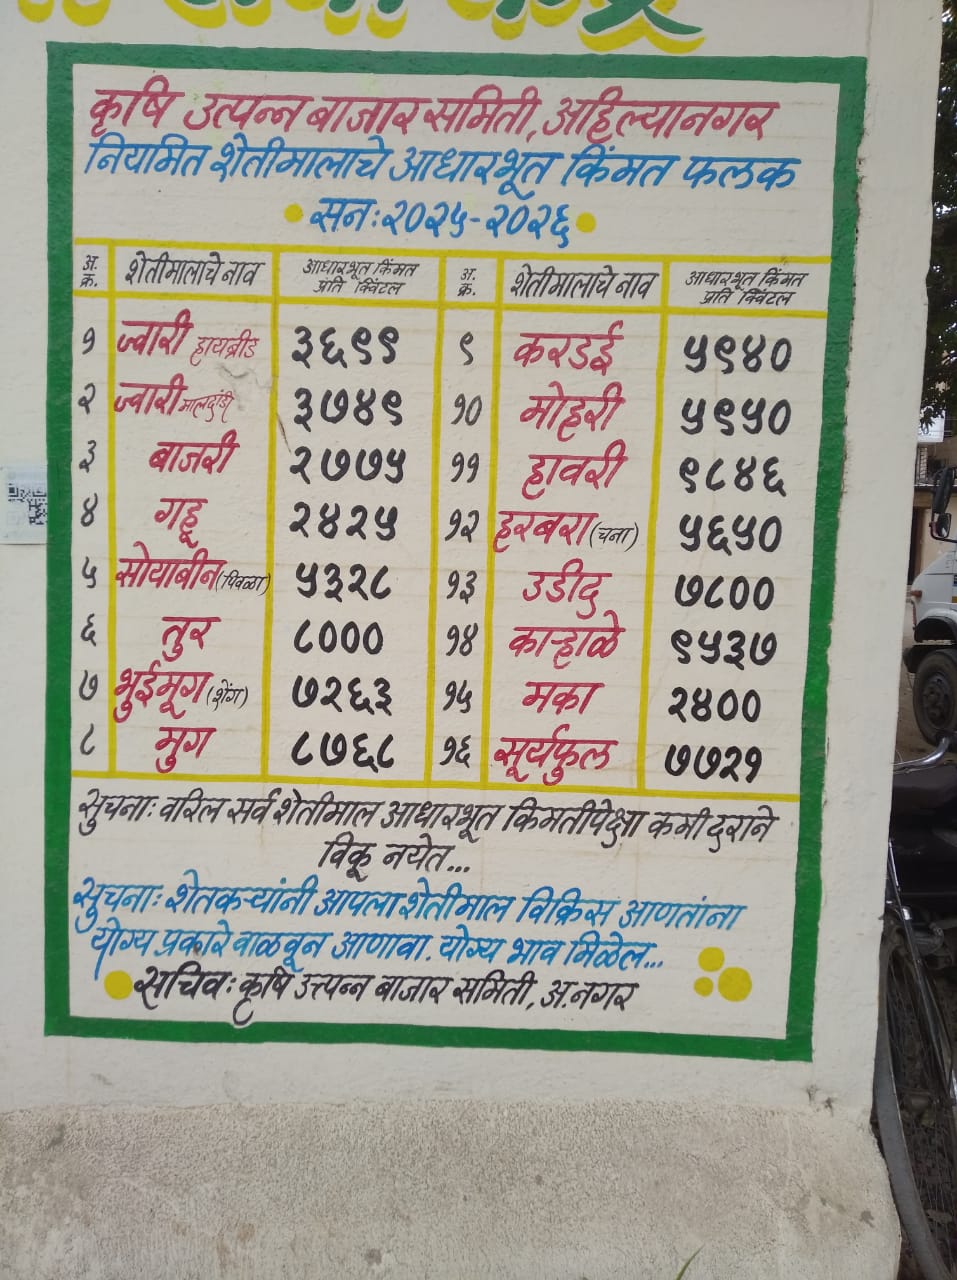 कृषि उत्पन्न बाजार समिती, अहिल्यानगर
नियमित शेतीमालाचे आधारभूत किंमत फलक
सन:२०२५-२०२६
अ. क्र. शेतीमालाचे नाव आधारभूत किंमत प्रति क्विंटल अ. क्र. शेतीमालाचे नाव आधारभूत किंमत प्रति क्विंटल
१ ज्वारी हायब्रीड ३६९९ ९ करडई ५९४०
२ ज्वारी मालदांडी ३७४९ १० मोहरी ५९५०
३ बाजरी २७७५ ११ हावरी ९८४६
४ गहू २४२५ १२ हरबरा (चना) ५६५०
५ सोयाबीन (पिवळा) ५३२८ १३ उडीद ७८००
६ तुर ८००० १४ काऱ्हाळे ९५३७
७ भुईमूग (शेंग) ७२६३ १५ मका २४००
८ मुग ८७६८ १६ सूर्यफुल ७७२१
सुचना: वरिल सर्व शेतीमाल आधारभूत किमतीपेक्षा कमी दराने
विकू नयेत...
सुचना: शेतकऱ्यांनी आपला शेतीमाल विक्रिस आणतांना
योग्य प्रकारे वाळवून आणावा. योग्य भाव मिळेल...
सचिव: कृषि उत्त्पन्न बाजार समिती, अ.नगर